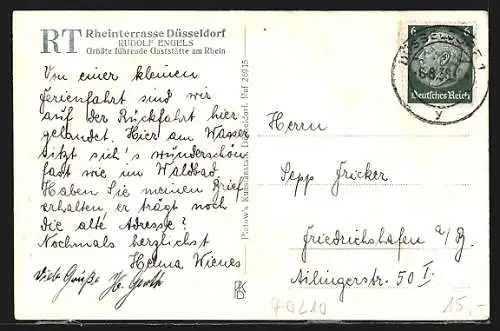 RT Rheinterrasse Düsseldorf
RUDOLF ENGELS
Größte führende Gaststätte am Rhein
Von einer kleinen
Ferienfahrt sind wir
auf der Rückfahrt hier
gelandet. Hier am Wasser
sitzt sich's wunderschön
fast wie im Waldbad.
Haben Sie meinen Brief
erhalten, er trägt noch
die alte Adresse?
Nochmals herzlichst
Helma Wienes
Viele Grüße H.
Kunstanstalt, Düsseldorf, Ruf 26915
6 6
Deutsches Reich
DÜSSELDORF 1
y
Herrn
Sepp Fricker
Friedrichshafen a/B.
Ailingerstr. 50 I.
70210
15,-